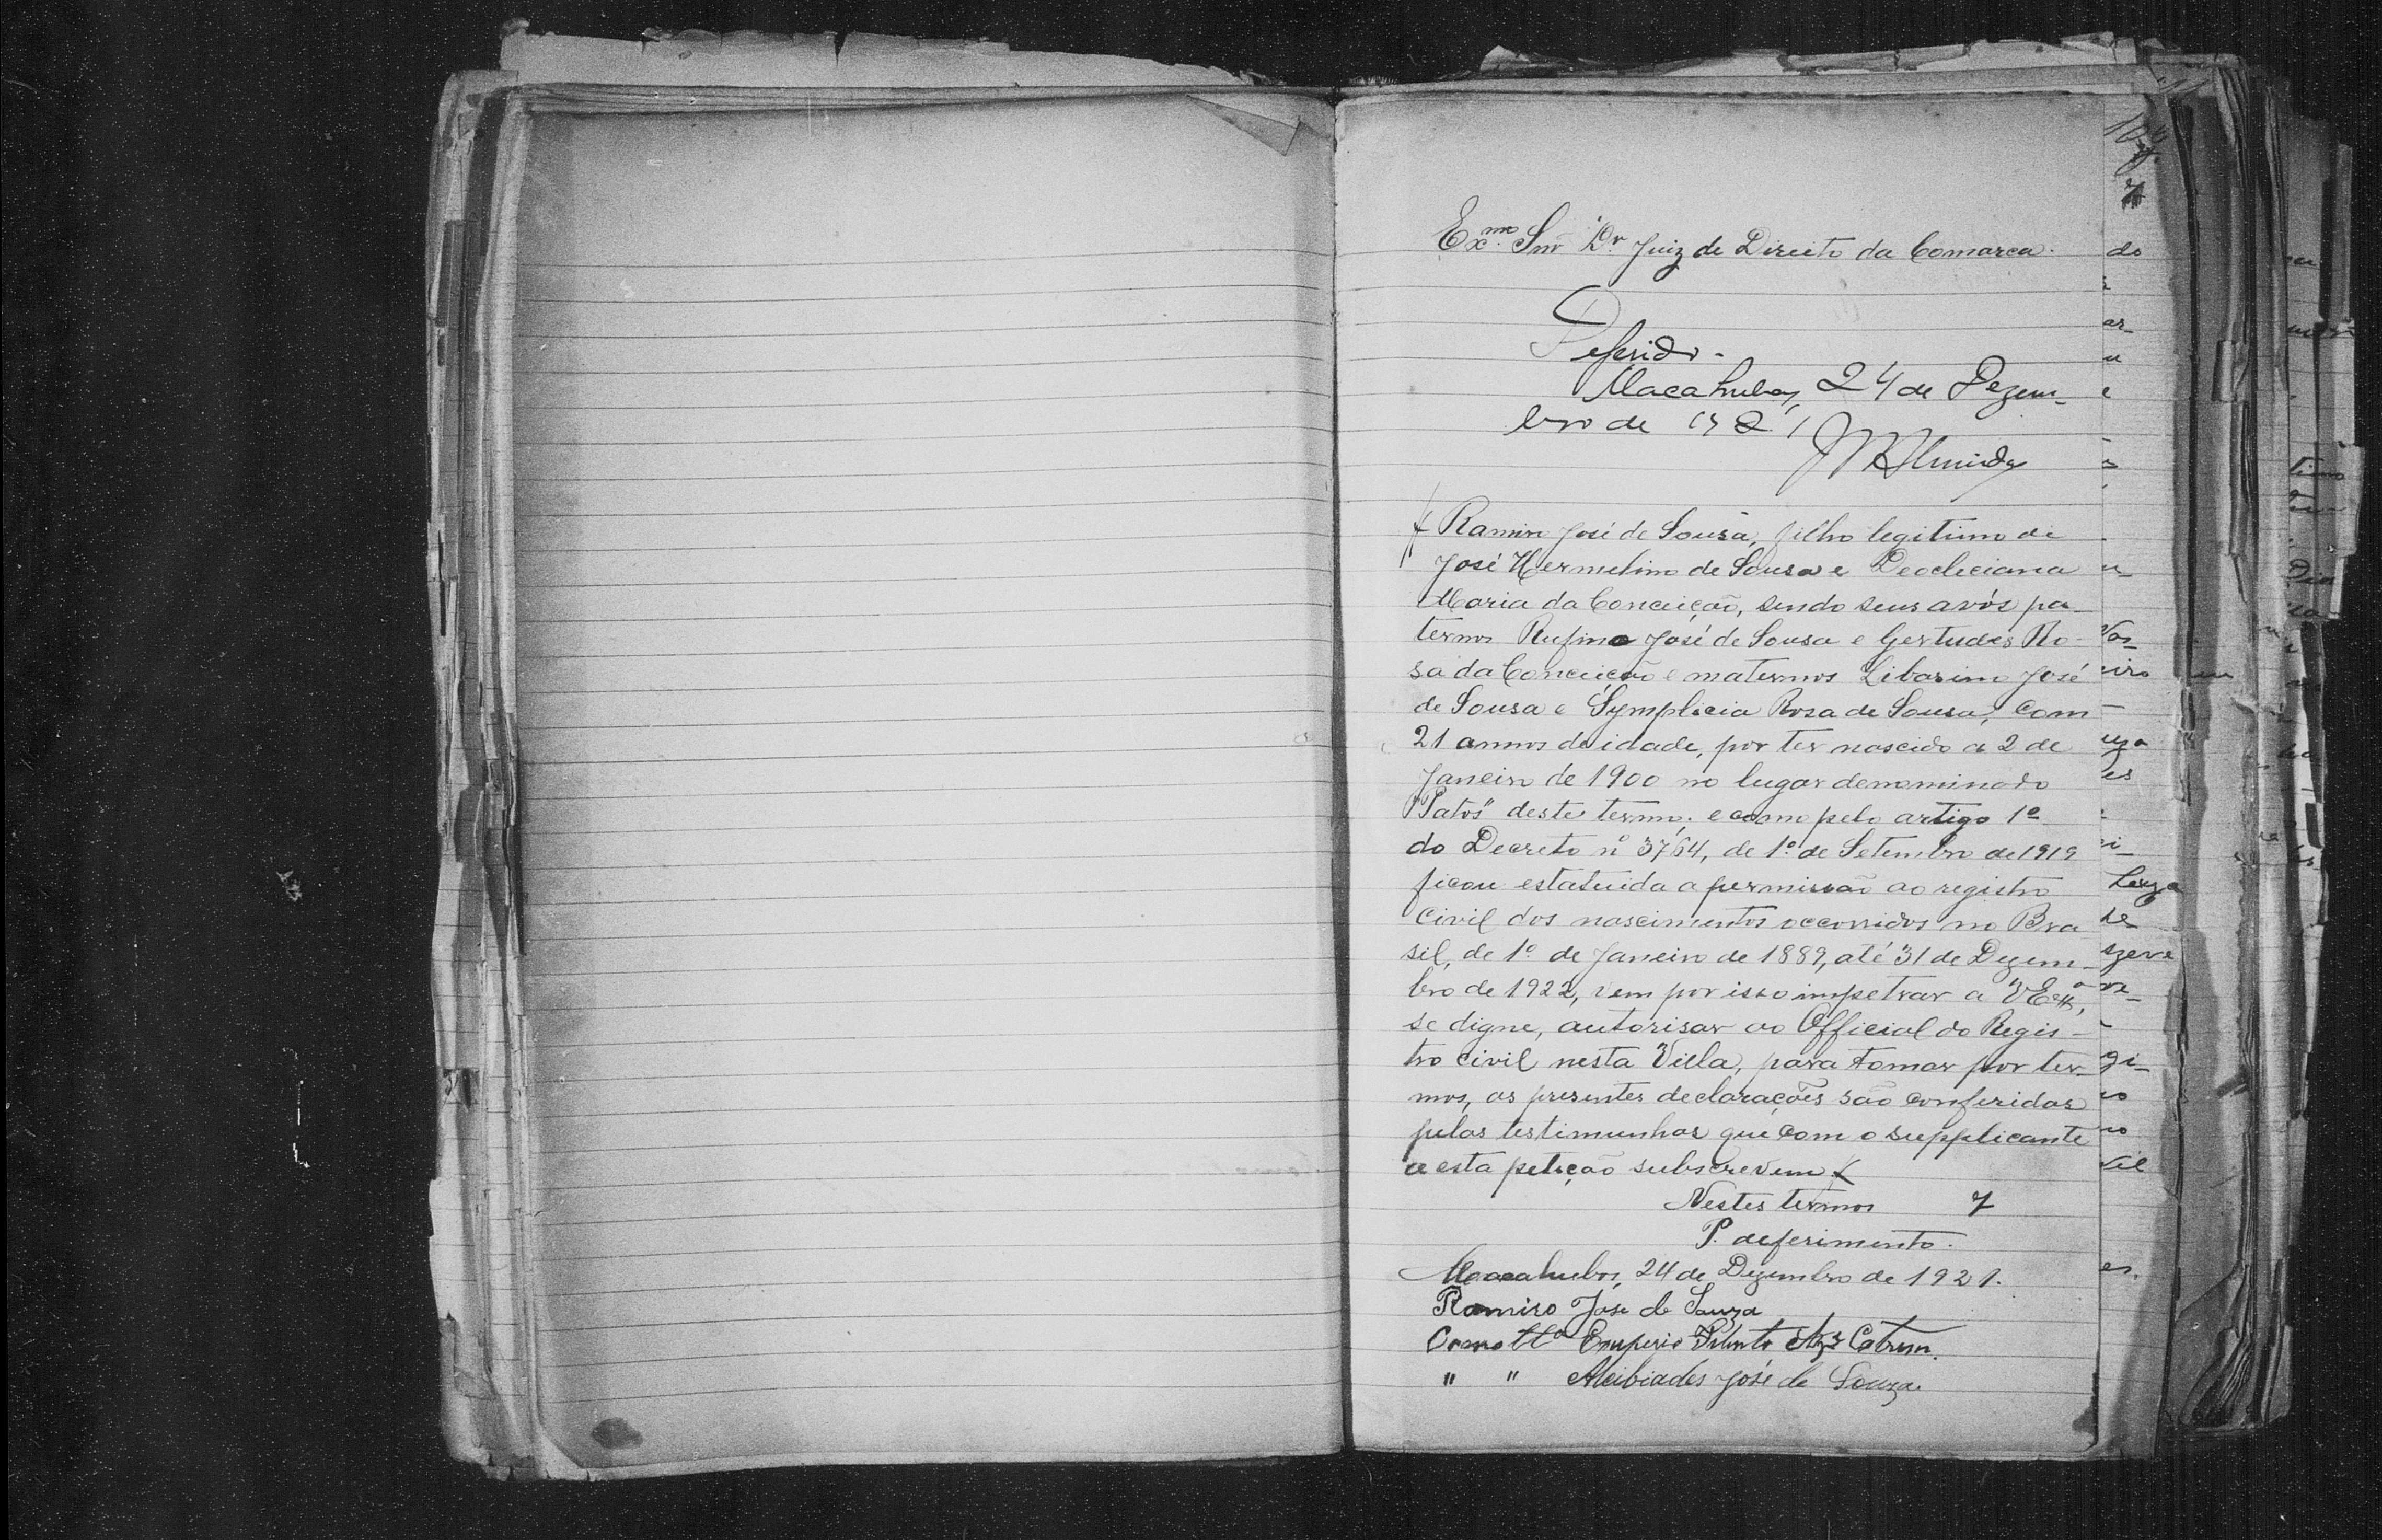 Exmo. Snr Dr Juiz de Direito da Comarca.
Deferido.
Macahubas, 24 de Dezem-
bro de 1921
Ramiro José de Sousa, filho legitimo de
José Hermelino de Sousa e Deocleciana
Maria da Conceição, sendo seus avós pa-
ternos Rufino José de Sousa e Gertudes Ro-
sa da Conceição e maternos Libarino José
de Sousa e Symplicia Rosa de Sousa, com
21 annos de idade, por ter nascido a 2 de
Janeiro de 1900 no lugar denominado
"Patos" deste termo; e como pelo artigo 1º
do Decreto nº 3764, de 1º de Setembro de 1919
ficou estatuida a permissão ao registro
civil dos nascimentos occorridos no Bra
sil, de 1º de Janeiro de 1889, até 31 de Dezem-
bro de 1922, vem por isso impetrar a VExª,
se digne, autorisar ao Official do Regis-
tro civil nesta Villa, para tomar por ter-
mos, as presentes declarações são conferidas
pelas testimunhas que com o supplicante
a esta petição subscrevem
Nestes termos
P. deferimento.
Macahubas, 24 de Dezembro de 1921.
Ramiro José de Souza
Como ttª
" " Alcibiades José de Souza.